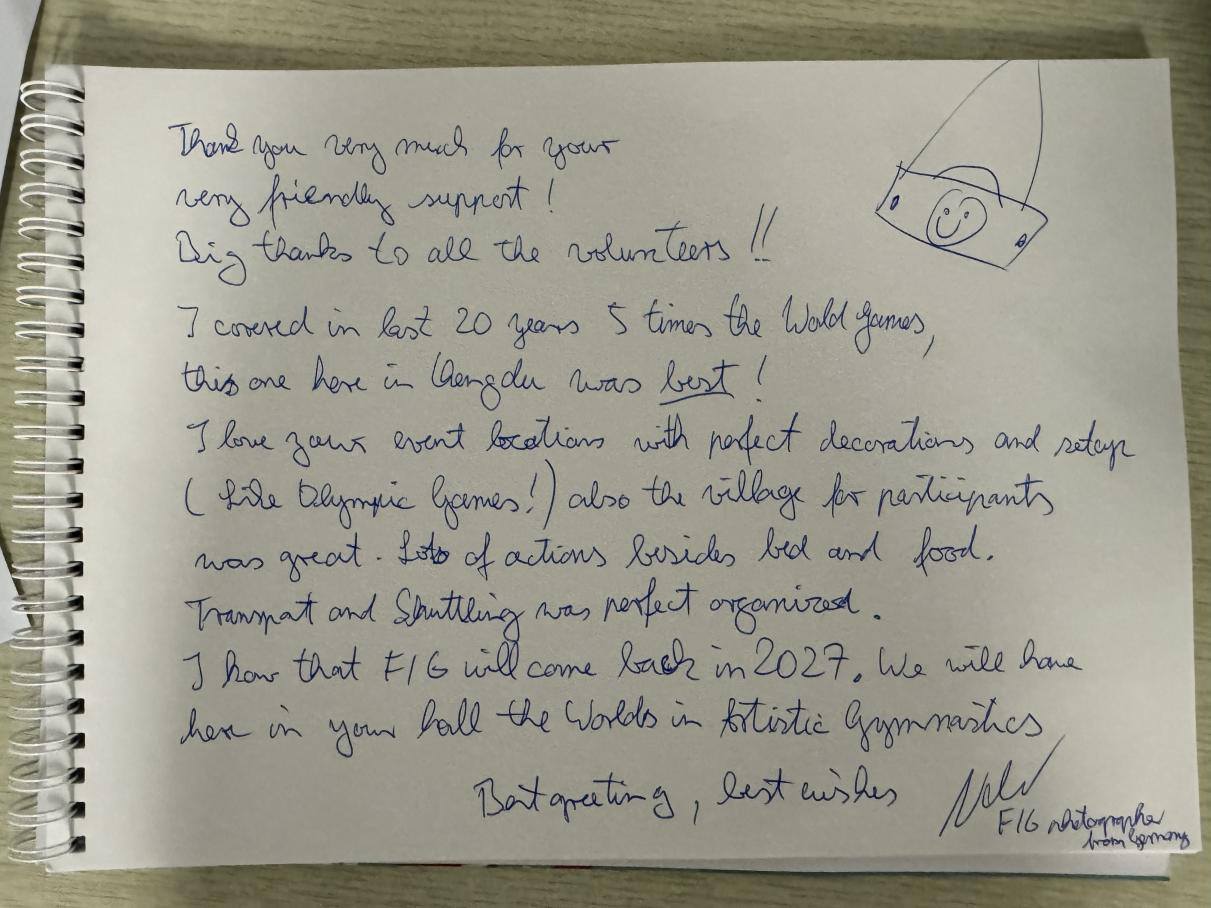 Thank you very much for your
very friendly support!
Big thanks to all the volunteers!!
I covered in last 20 years 5 times the World Games,
this one here in Chengdu was best!
I love your event locations with perfect decorations and setup
(Like Olympic Games!) also the village for participants
was great. Lots of actions besides bed and food.
Transport and Shuttling was perfect organized.
I know that FIG will come back in 2027. We will have
here in your hall the Worlds in Artistic Gymnastics
Best greeting, best wishes
FIG photographer
from Germany